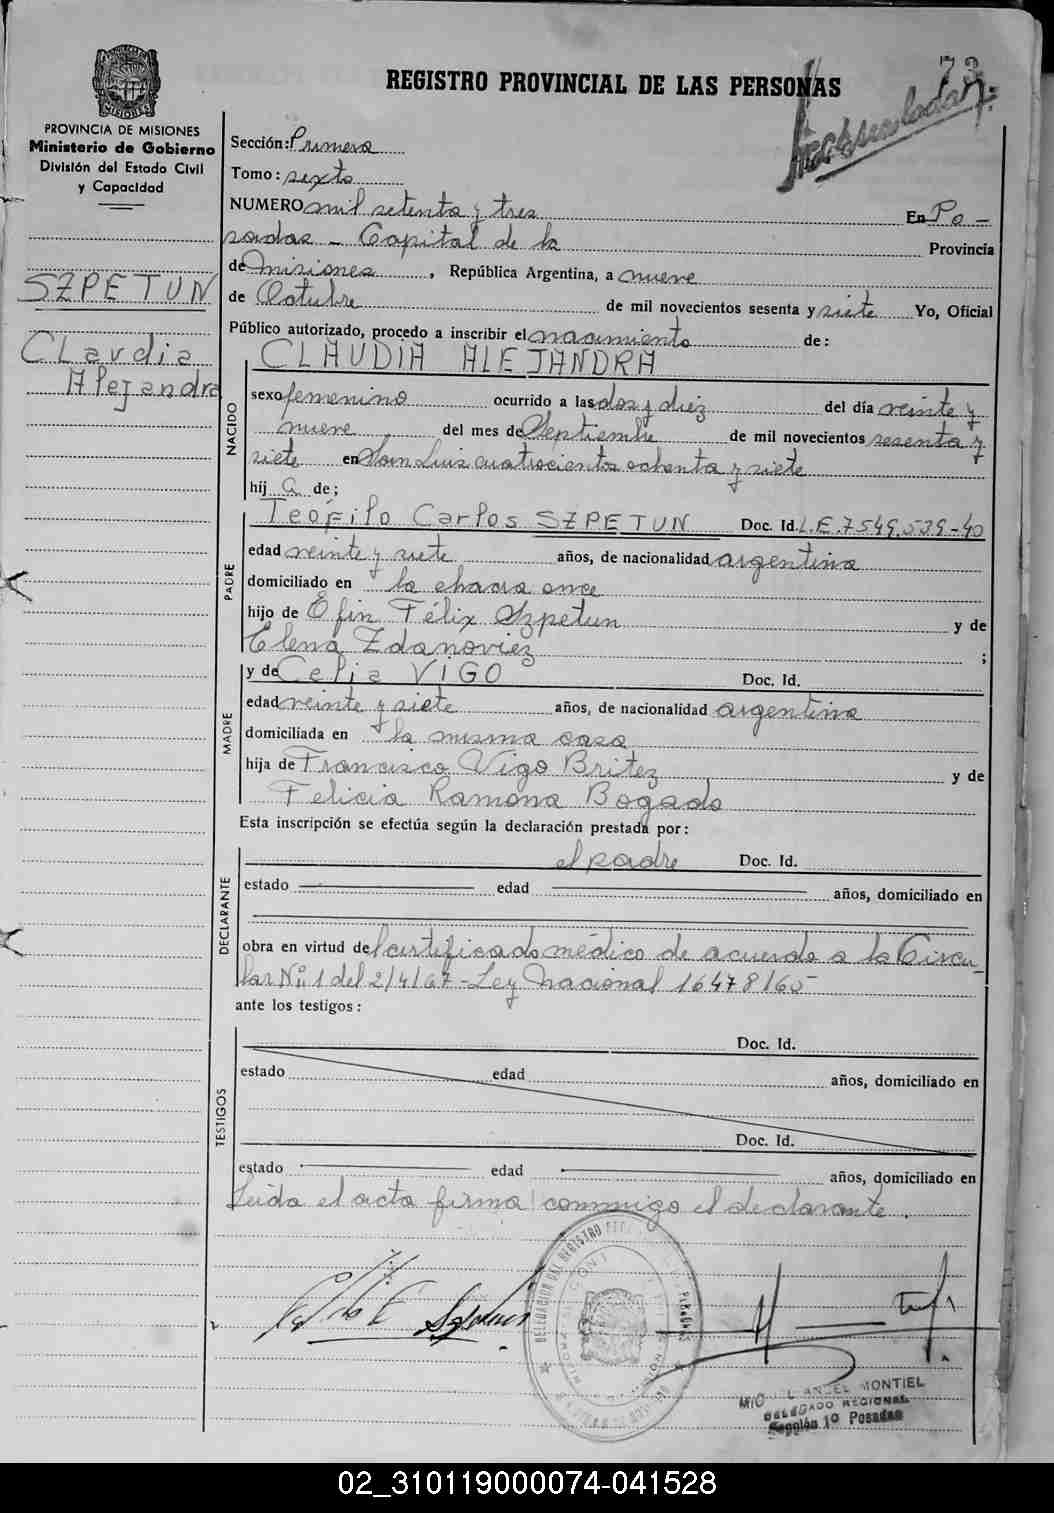 73
REGISTRO PROVINCIAL DE LAS PERSONAS
PROVINCIA DE MISIONES
Ministerio de Gobierno
División del Estado Civil
y Capacidad
SZPETUN
Claudia
Alejandra
Sección: Primera
Tomo: sexto
NUMERO mil setenta y tres En Po-
sadas - Capital de la Provincia
de Misiones, República Argentina, a nueve
de Octubre de mil novecientos sesenta y siete Yo, Oficial
Público autorizado, procedo a inscribir el nacimiento de:
CLAUDIA ALEJANDRA
NACIDO
sexo femenino ocurrido a las dos y diez del día veinte y
nueve del mes de Septiembre de mil novecientos sesenta y
siete en San Luis cuatrocientos ochenta y siete
hij a de;
PADRE
Teófilo Carlos SZPETUN Doc. Id. L.E. 7.549.539-40
edad veinte y siete años, de nacionalidad argentina
domiciliado en la chacra once
hijo de Efin Félix Szpetun y de
Elena Zdanoviez ;
MADRE
y de Celia VIGO Doc. Id.
edad veinte y siete años, de nacionalidad argentina
domiciliada en la misma casa
hija de Francisco Vigo Britez y de
Felicia Ramona Bogado
Esta inscripción se efectúa según la declaración prestada por:
DECLARANTE
el padre Doc. Id.
estado edad años, domiciliado en
obra en virtud del certificado médico de acuerdo a la Circu-
lar Nº 1 del 2/4/67 - Ley Nacional 16478/65
ante los testigos:
TESTIGOS
Doc. Id.
estado edad años, domiciliado en
Doc. Id.
estado edad años, domiciliado en
Leida el acta firma conmigo el declarante.
DELEGACION DEL REGISTRO
ANGEL MONTIEL
DELEGADO REGIONAL
Sección 1º Posadas
02_310119000074-041528